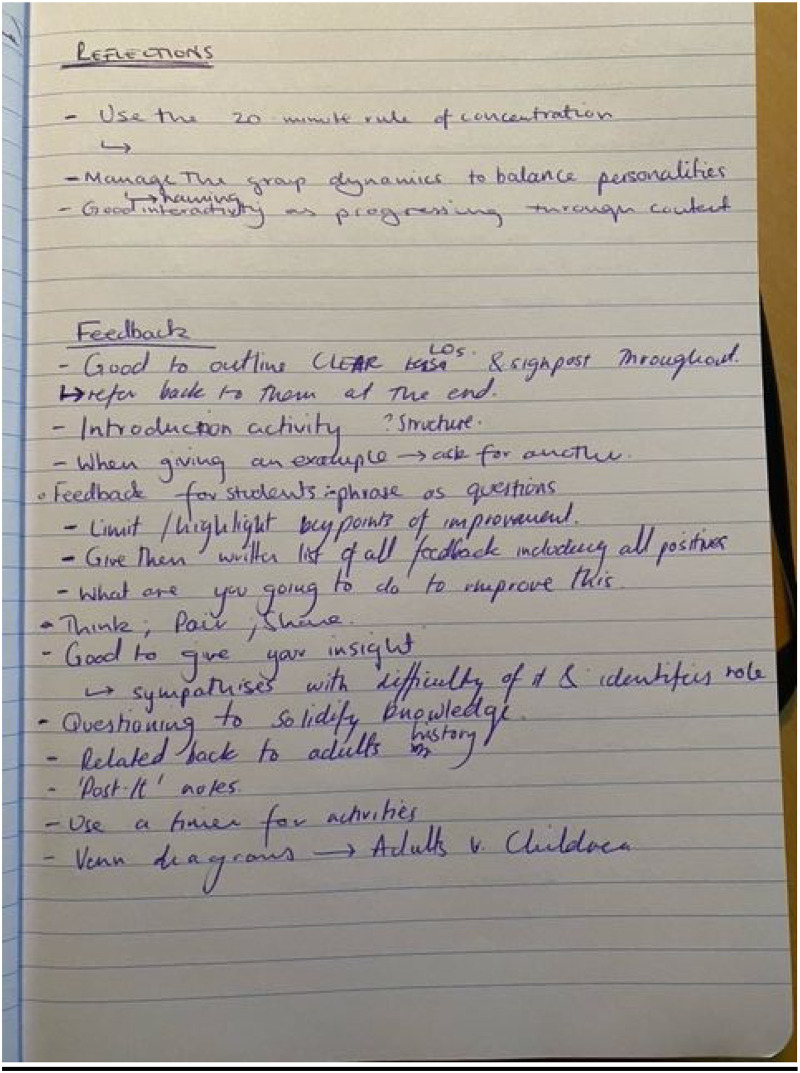 REFLECTIONS
- Use the 20 minute rule of concentration
↳
- Manage The group dynamics to balance personalities
↳ naming
- Good interactivity as progressing through content
Feedback
- Good to outline CLEAR LOs. & signpost Throughout.
↳ refer back to them at The end.
- Introduction activity ? Structure.
- When giving an example → ask for another.
• Feedback for students :- phrase as questions
- Limit / highlight key points of improvement.
- Give them written list of all feedback including all positives
- What are you going to do to improve this.
• Think ; Pair ; Share.
- Good to give your insight
↳ sympathises with difficulty of it & identifies role
- Questioning to solidify knowledge.
- Related back to adults history
- 'Post-It' notes.
- Use a timer for activities
- Venn diagrams → Adults v. Children